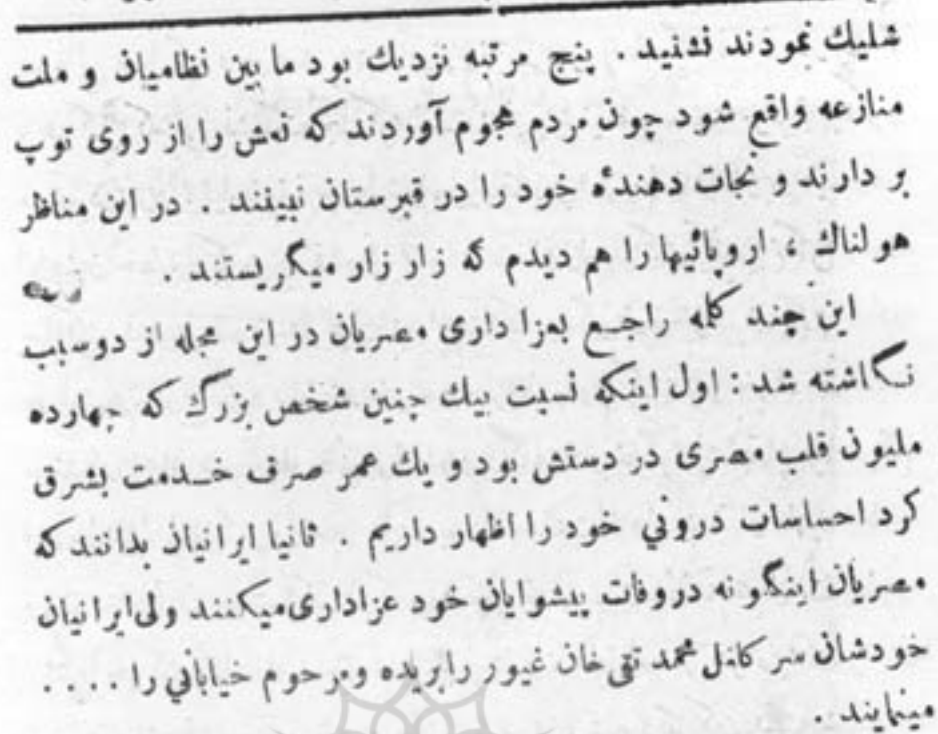 شلیك نمودند نشنید . پنج مرتبه نزدیك بود ما بین نظامیان و ملت
منازعه واقع شود چون مردم هجوم آوردند که نعش را از روی توپ
بر دارند و نجات دهندهٔ خود را در قبرستان نبینند . در این مناظر
هولناك ، اروپائیها را هم دیدم که زار زار میگریستند .
این چند کلمه راجع بعزا داری مصریان در این مجله از دوسبب
نگاشته شد : اول اینکه نسبت بیك چنین شخص بزرگ که چهارده
ملیون قلب مصری در دستش بود و یك عمر صرف خدمت بشرق
کرد احساسات درونی خود را اظهار داریم . ثانیا ایرانیان بدانند که
مصریان اینگونه دروفات پیشوایان خود عزاداری میکنند ولی ایرانیان
خودشان سر کلنل محمد تقی خان غیور رابریده ومرحوم خیابانی را . . . .
مینمایند .